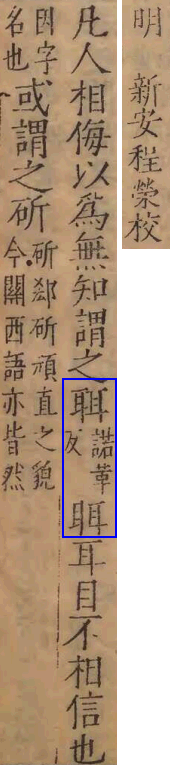 明 新安程榮校
凡人相侮以爲無知謂之聑諾革反眲耳目不相信也
因字名也或謂之斫斫郄斫頑直之貌今關西語亦皆然